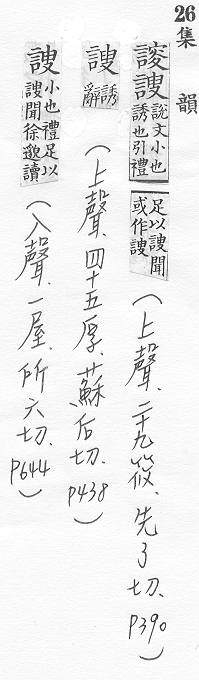 26
集韻
謏謏說文小也誘也引禮足以謏聞或作謏(上聲、二十九筱、先了切、P390)
謏誘辭(上聲、四十五厚、蘇后切、P438)
謏小也禮足以謏聞徐邈讀(入聲、一屋、所六切、P644)